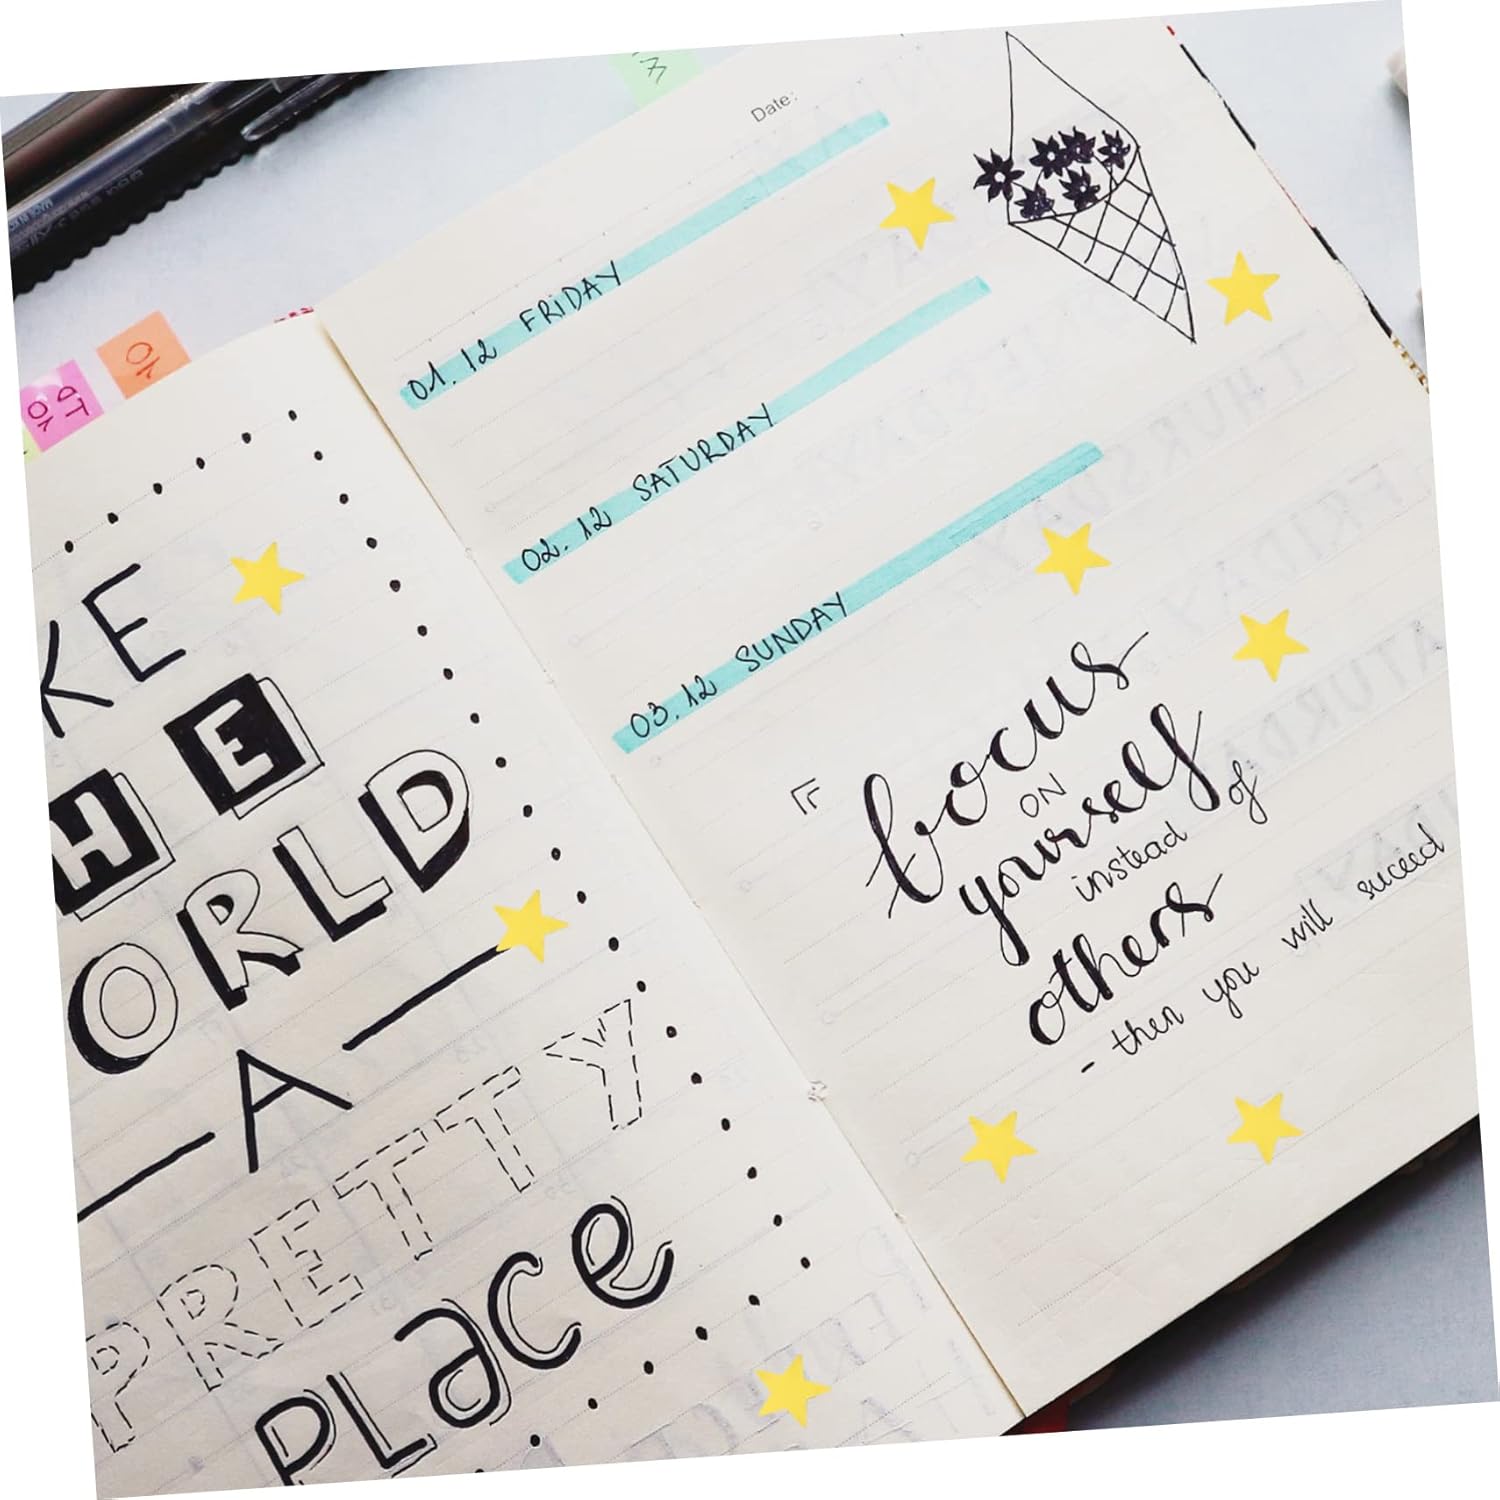 KE
HE
ORLD
A
PRETTY
PLace
Date:
01.12 FRiDAY
02.12 SATURDAY
03.12 SUNDAY
focus
ON
yourself
instead of
others
- then you will suceed
10